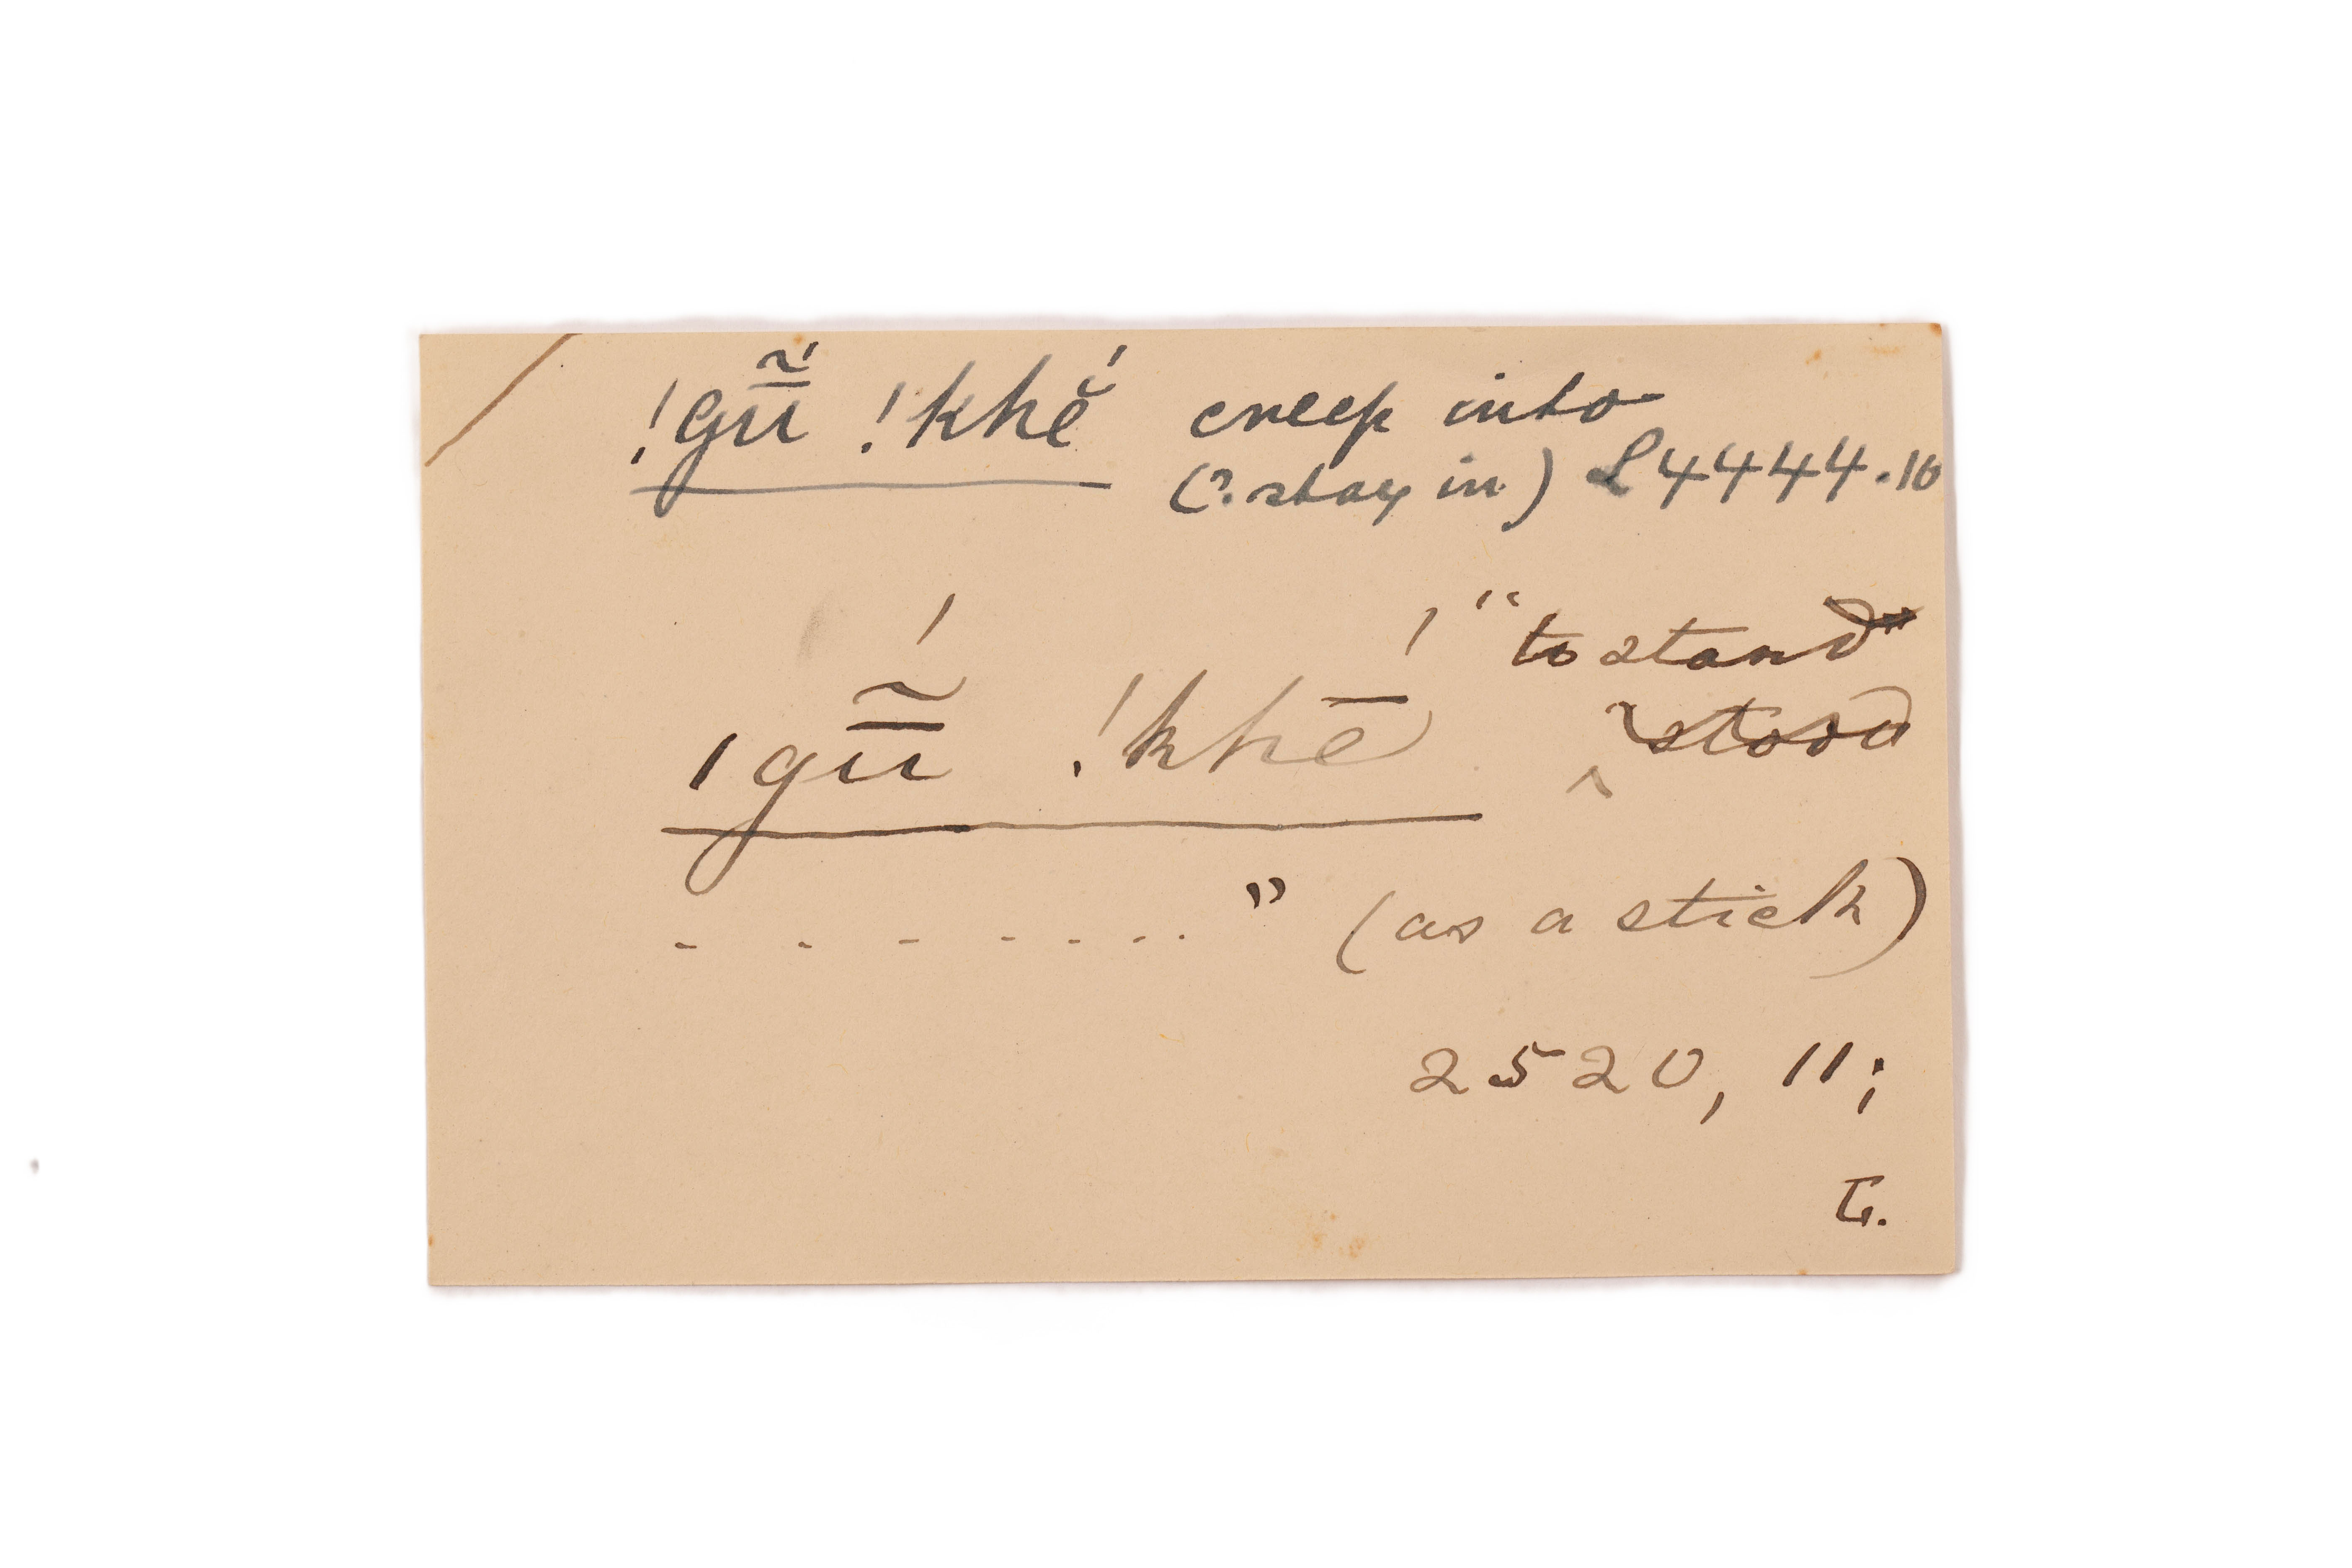 !gū̃́ !khĕ́ creep into
(? stay in) L4444.10
"to stand"
ǀgū̃́ !khḗ stood
. . . . . . ." (as a stick)
2520, 11;
G.